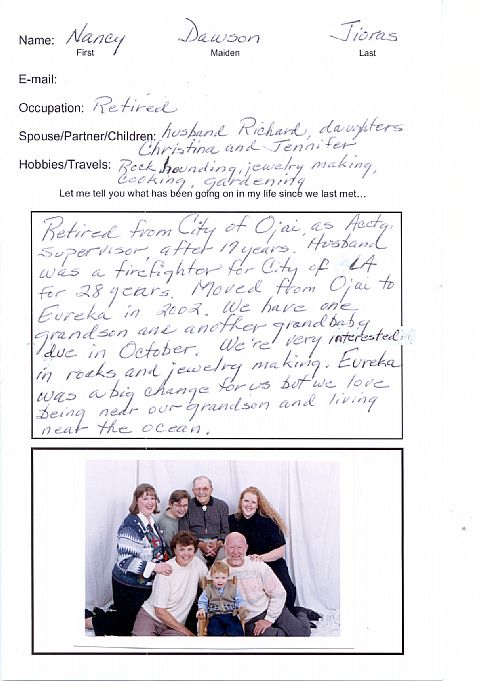 Name: Nancy Dawson Jioras
First Maiden Last
E-mail:
Occupation: Retired
Spouse/Partner/Children: husband Richard, daughters
Christina and Jennifer
Hobbies/Travels: Rock hounding, jewelry making,
cooking, gardening
Let me tell you what has been going on in my life since we last met...
Retired from City of Ojai, as Acctg.
Supervisor, after 17 years. Husband
was a firefighter for City of LA
for 28 years. Moved from Ojai to
Eureka in 2002. We have one
grandson and another grandbaby
due in October. We're very interested
in rocks and jewelry making. Eureka
was a big change for us but we love
being near our grandson and living
near the ocean.